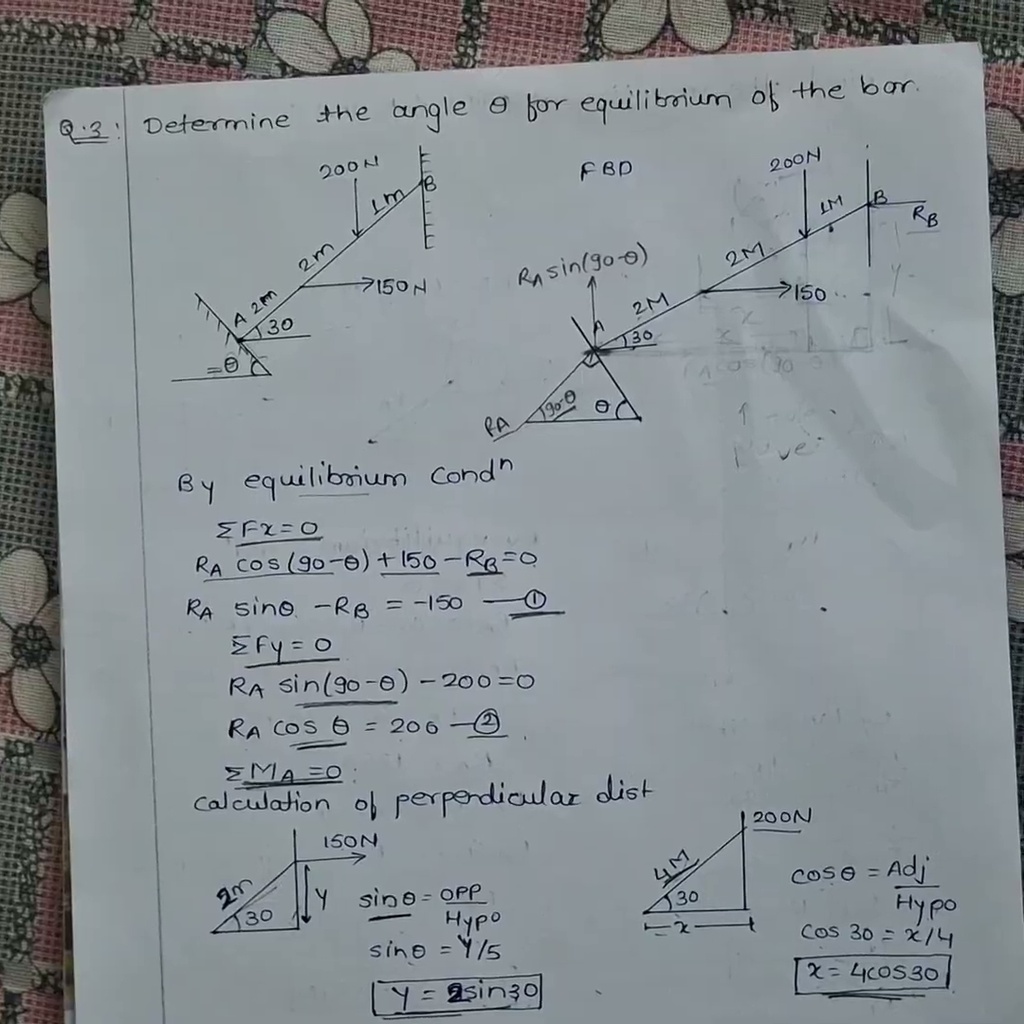 Q.3: Determine the angle θ for equilibrium of the bar.
200N
1m
B
2m
→150N
A 2m
30
=θ
FBD
200N
1M
B
RB
2M
RA sin(90-θ)
→150
2M
A
30
90-θ
θ
RA
By equilibrium Condⁿ
ΣFx=0
RA cos(90-θ)+150-RB=0
RA sinθ -RB = -150 —①
ΣFy=0
RA sin(90-θ)-200=0
RA cos θ = 200 —②
ΣMA=0:
Calculation of perpendicular dist
150N
2m
Y
30
sinθ = OPP/Hypo
sinθ = Y/5
Y = 2sin30
200N
4M
30
x
cosθ = Adj/Hypo
cos 30 = x/4
x = 4cos30